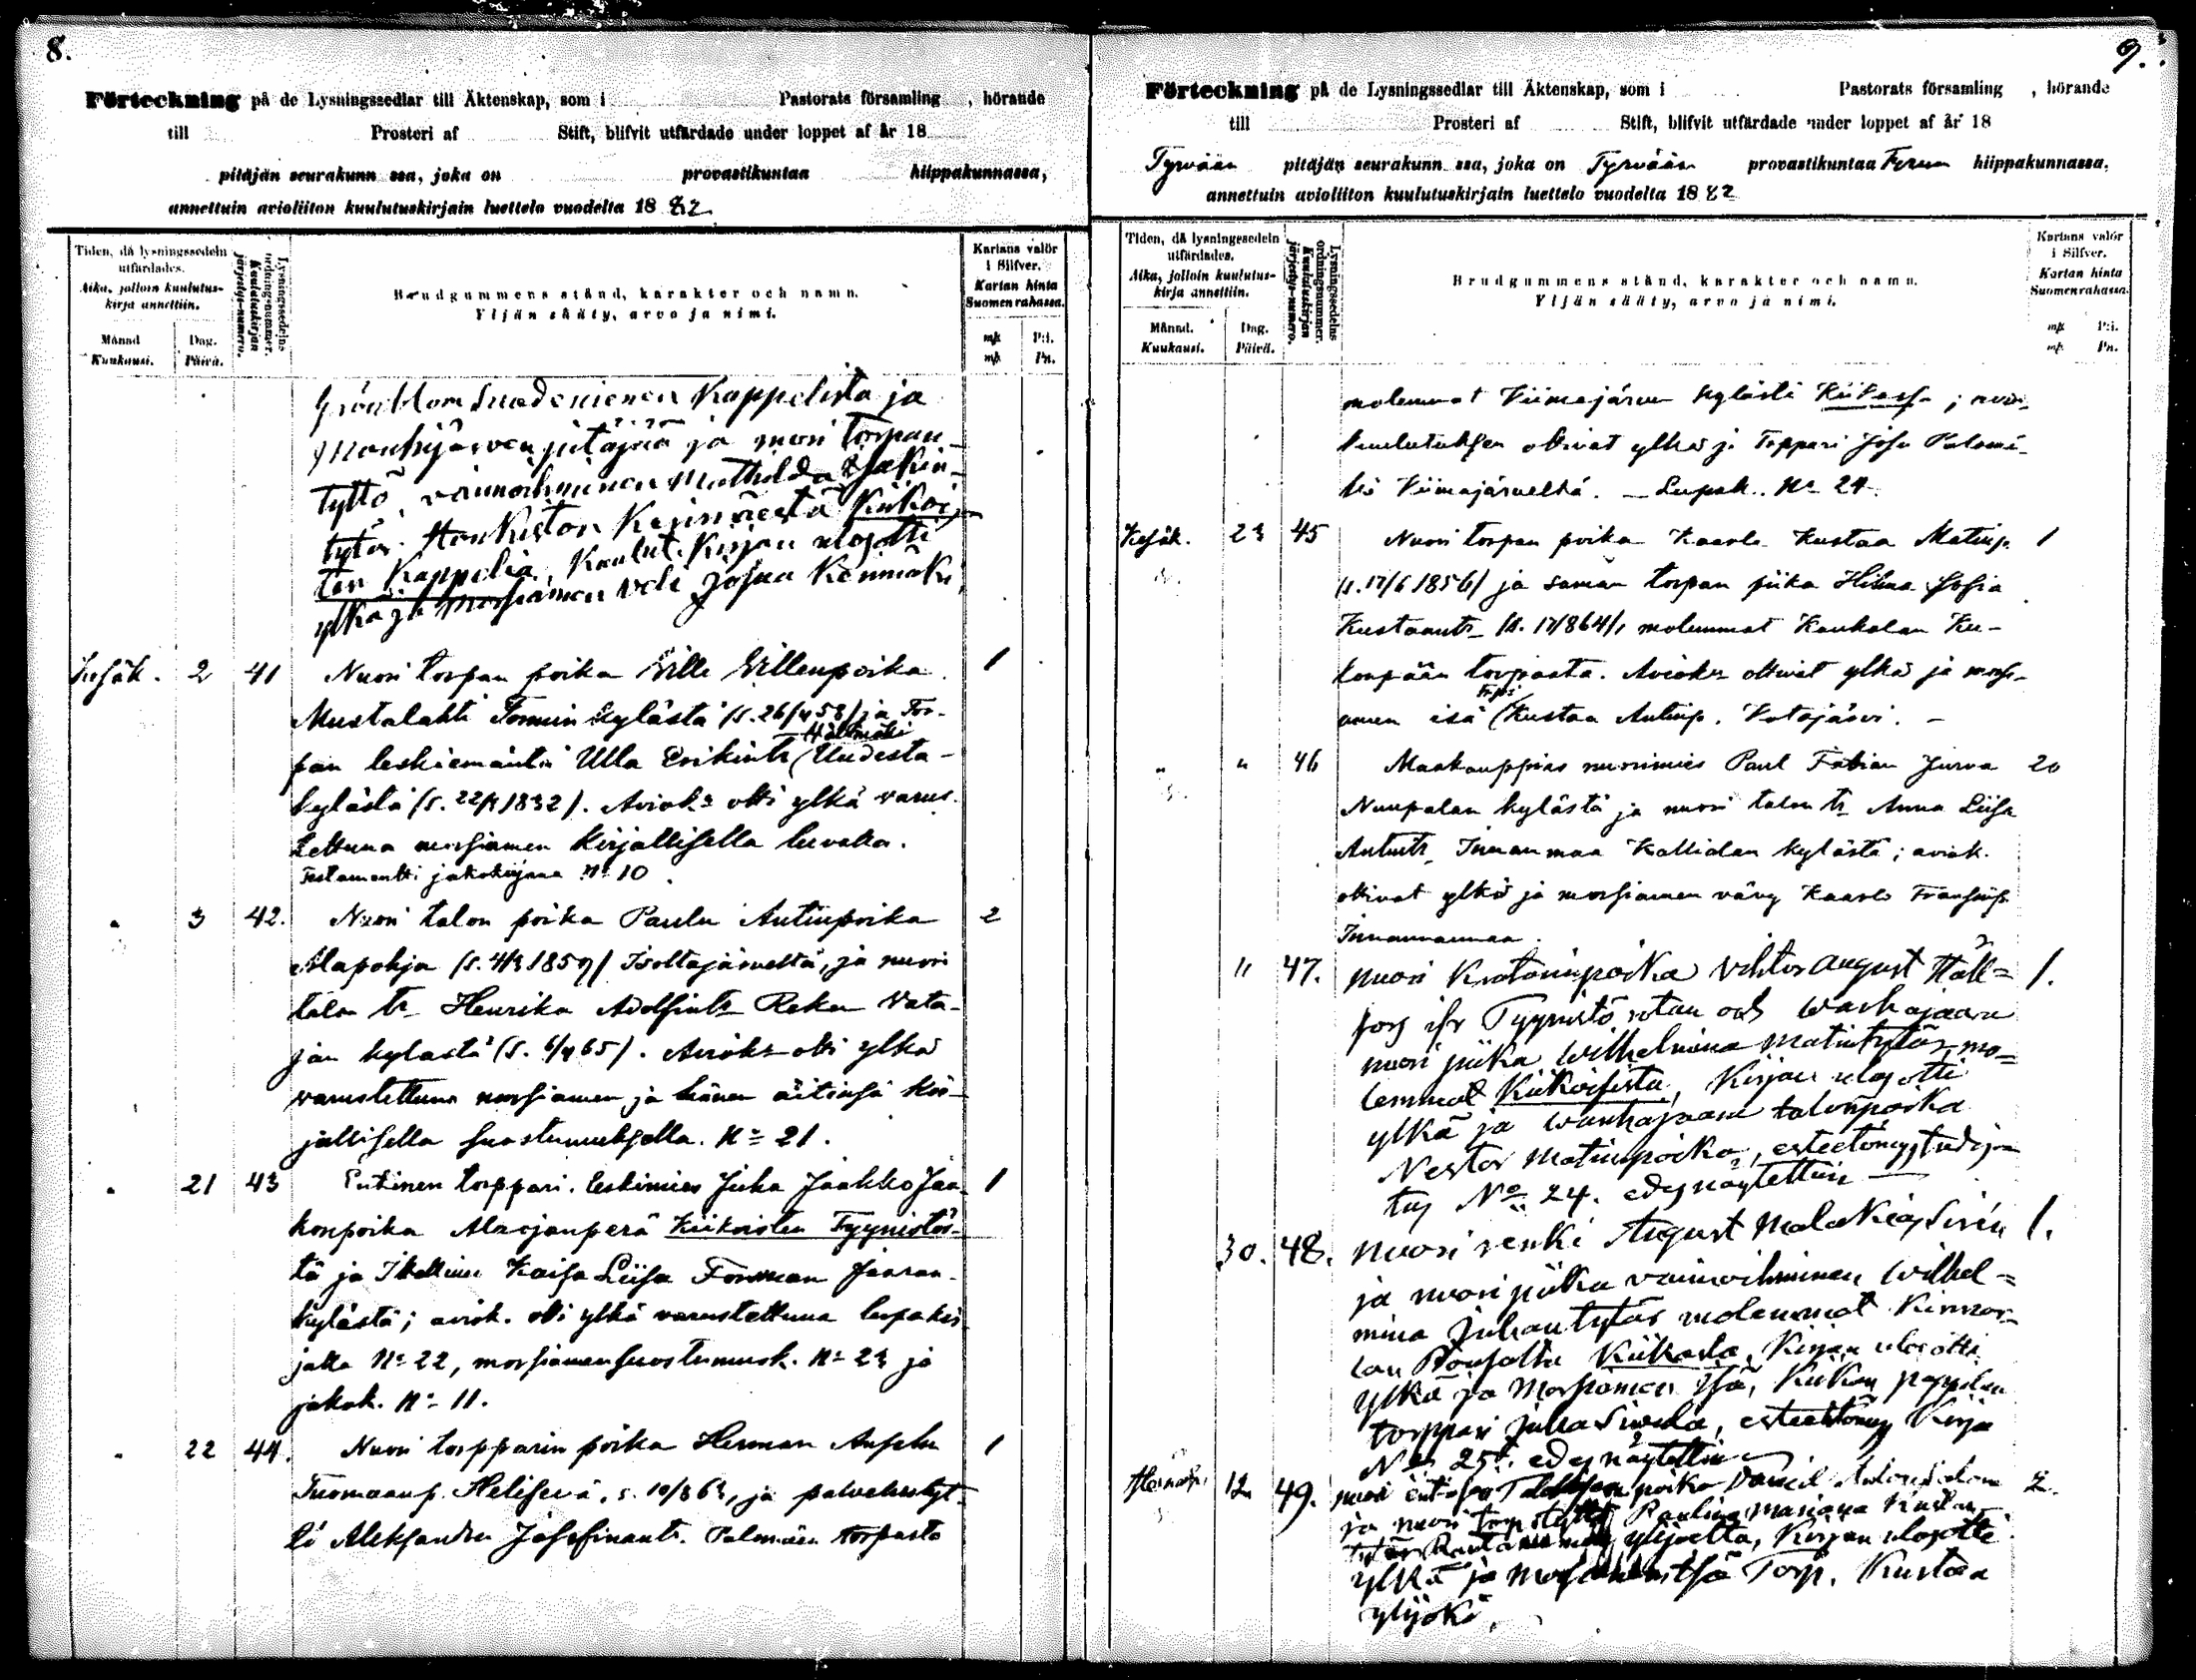 8.
Förteckning på de Lysningssedlar till Äktenskap, som i Pastorats församling , hörande
till Prosteri af Stift, blifvit utfärdade under loppet af år 18
pitäjän seurakunn ssa, joka on provastikuntaa hiippakunnassa,
annettuin avioliiton kuulutuskirjain luettelo vuodelta 18 82
Tiden, då lysningssedeln utfärdades.
Aika, jolloin kuulutuskirja annettiin.
Månad Kuukausi.
Dag. Päivä.
Lysningssedelns ordningsnummer.
Kuulutuskirjan järjestys-numero.
Brudgummens stånd, karakter och namn.
Yljän sääty, arvo ja nimi.
Kartans valör i Silfver.
Kartan hinta Suomen rahassa.
mk P:i.
mk Pn.
Grönblom Suodenienen Kappelista ja
Mouhijärven pitäjää ja nuori torpan
tyttö, vaimoihminen Mathilda Isakin-
tytär Honkiston Keinäestä Kiikois-
ten Kappelia, Kuulut. Kirjan ulosotti
ylkä ja morsiamen veli Josua Keinmäki
Kesäk. 2 41 Nuori torpan poika Ville Villenpoika 1
Mustalahti Tomuin kylästä (s. 26/4 58) ja Tor-
Hältmäki
pan leskiemäntä Ulla Erikintr (Uudesta-
kylästä (s. 22/4 1832). Aviok:n otti ylkä varus-
tettuna morsiamen kirjallisella luvalla.
Testamentti jakokirjana N:o 10.
" 3 42. Nuori talon poika Paulu Antinpoika 2
Alapohja (s. 4/3 1859) Isoltajärveltä, ja nuori
talon tr Henrika Adolfintr Reku Vata-
jan kylästä (s. 6/4 65). Aviok:n otti ylkä
varustettuna morsiamen ja hänen äitinsä kir-
jallisella suostumuksella. N:o 21.
" 21 43 Entinen torppari, leskimies Juha Jaakko Jaa- 1
konpoika Alaojanperä Kiikoisten Tyynistös-
tä ja Itsellinen Kaisa Liisa Forsman Jaaran-
kylästä; aviok. otti ylkä varustettuna lupakir-
jalla N:o 22, morsiamen suostumusk. N:o 23 ja
jakok. N:o 11.
" 22 44. Nuori torpparin poika Herman Anselm 1
Tuomaanp. Helisevä, s. 10/8 63, ja palvelustyt-
tö Aleksandra Josefinantr. Palomäen torpasta
9.
Förteckning på de Lysningssedlar till Äktenskap, som i Pastorats församling , hörande
till Prosteri af Stift, blifvit utfärdade under loppet af år 18
Tyrvään pitäjän seurakunn ssa, joka on Tyrvään provastikuntaa Turun hiippakunnassa,
annettuin avioliiton kuulutuskirjain luettelo vuodelta 18 82
Tiden, då lysningssedeln utfärdades.
Aika, jolloin kuulutuskirja annettiin.
Månad. Kuukausi.
Dag. Päivä.
Lysningssedelns ordningsnummer.
Kuulutuskirjan järjestys-numero.
Brudgummens stånd, karakter och namn.
Yljän sääty, arvo ja nimi.
Kartans valör i Silfver.
Kartan hinta Suomen rahassa.
mk P:i.
mk Pn.
molemmat Kiimajärven kylästä Kiikassa; avio-
kuulutuksen ottivat ylkä ja Torppari Josu Palomä-
ki Kiimajärveltä. – Lupak. N:o 24.
Kesäk. 23 45 Nuori torpan poika Kaarlo Kustaa Matinp. 1
(s. 17/6 1856) ja saman torpan piika Hilma Sofia
Kustaantr (s. 17/864), molemmat Kaukolan Ku-
konpään torpasta. Aviok:n ottivat ylkä ja morsi-
amen isä (Kustaa Antinp. Kotajärvi. –
" " 46 Maakauppias nuorimies Paul Fabian Jurva 20
Nuupalan kylästä ja nuori talon tr Anna Liisa
Antintr Innanmaa Kallialan kylästä; aviok.
ottivat ylkä ja morsiamen vävy Kaarlo Fransinp.
Innanmaa.
" 47. nuori Kratarinpoika Vihtor August Häll- 1.
fors Tyynistö
nuori piika Wilhelmina Matintytär, mo-
lemmat Kiikoisista, Kirjan ulosotti
ylkä ja wanhajaara talonpoika
Nestor Matinpoika, esteettömyystodis-
tus N:o 24. edesnäytettiin
30. 48. nuori renki August Malakias Sirén 1.
ja nuori piika vaimoihminen Wilhel-
mina Juhantytär molemmat Kinnar-
Kiikasta, Kirjan ulosotti
ylkä ja Morsiamen Isä, Kiikan pappilan
torppari Juha Sivula, esteettömys Kirja
N:o 25. edesnäytettiin
Heinäk. 12 49. nuori poika Daniel 2.
ja nuori Paulina Mariana Kustan-
tytär ylijoelta, Kirjan ulosotti
ylkä ja Torp. Kustaa
ylijoki.